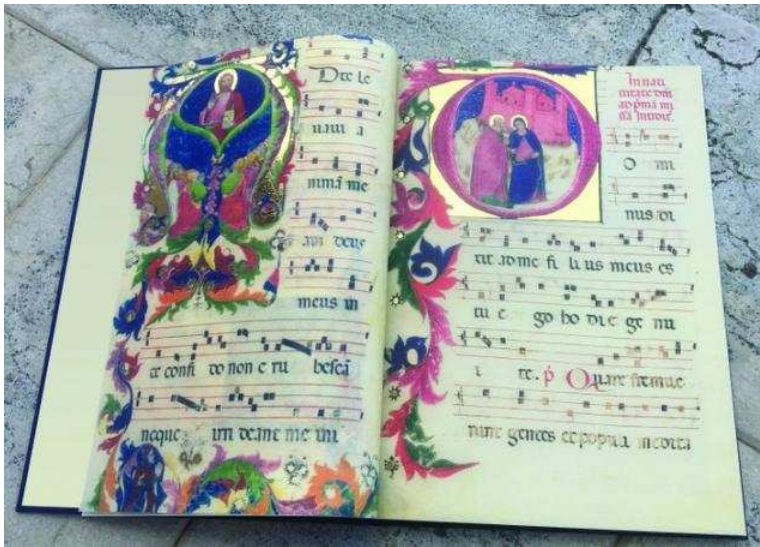 D te le
uaui a
nimã me
am deus
meus in
te confi do non e ru bescã
neque irri deant me ini
In nati
uitate dñi
ad pmã mi
ssã Introit.
O mi
nus di
xit ad me fi li us meus es
tu e go ho di e ge nu
i te. p̃ Quare fremue
runt gentes et populi medita